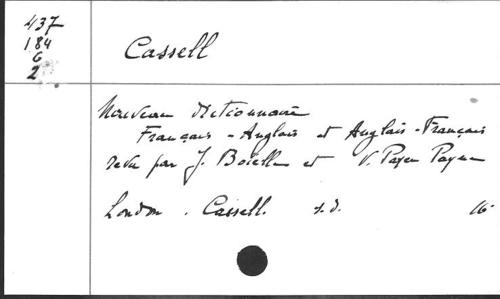 437
184
G
2
Cassell
Nouveau dictionnaire
Français - Anglais et Anglais - Français
revu par J. Boïelle et V. Payen Payne
London . Cassell. s.d. 16°